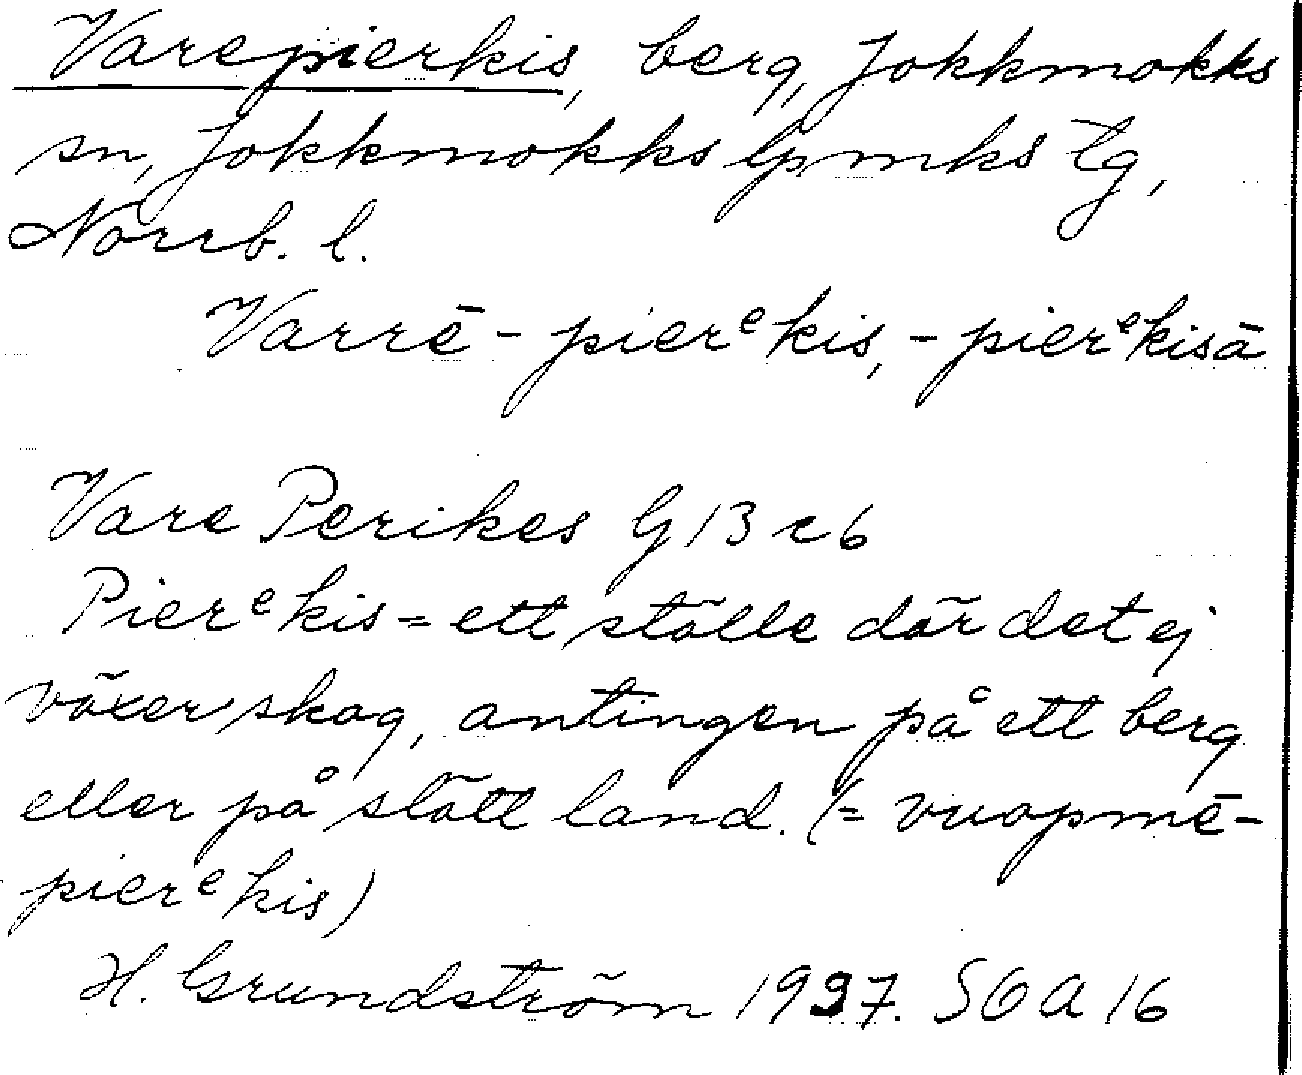 Varepierkis, berg, Jokkmokks
sn, Jokkmokks lpmks tg,
Norrb. l.
Varrē - pierᵉkis, - pierᵉkisā
Vare Perikes G 13 c 6
Pierᵉkis = ett ställe där det ej
växer skog, antingen på ett berg
eller på slätt land. (= vuopmē-
pierᵉkis)
H. Grundström 1937. SOA 16